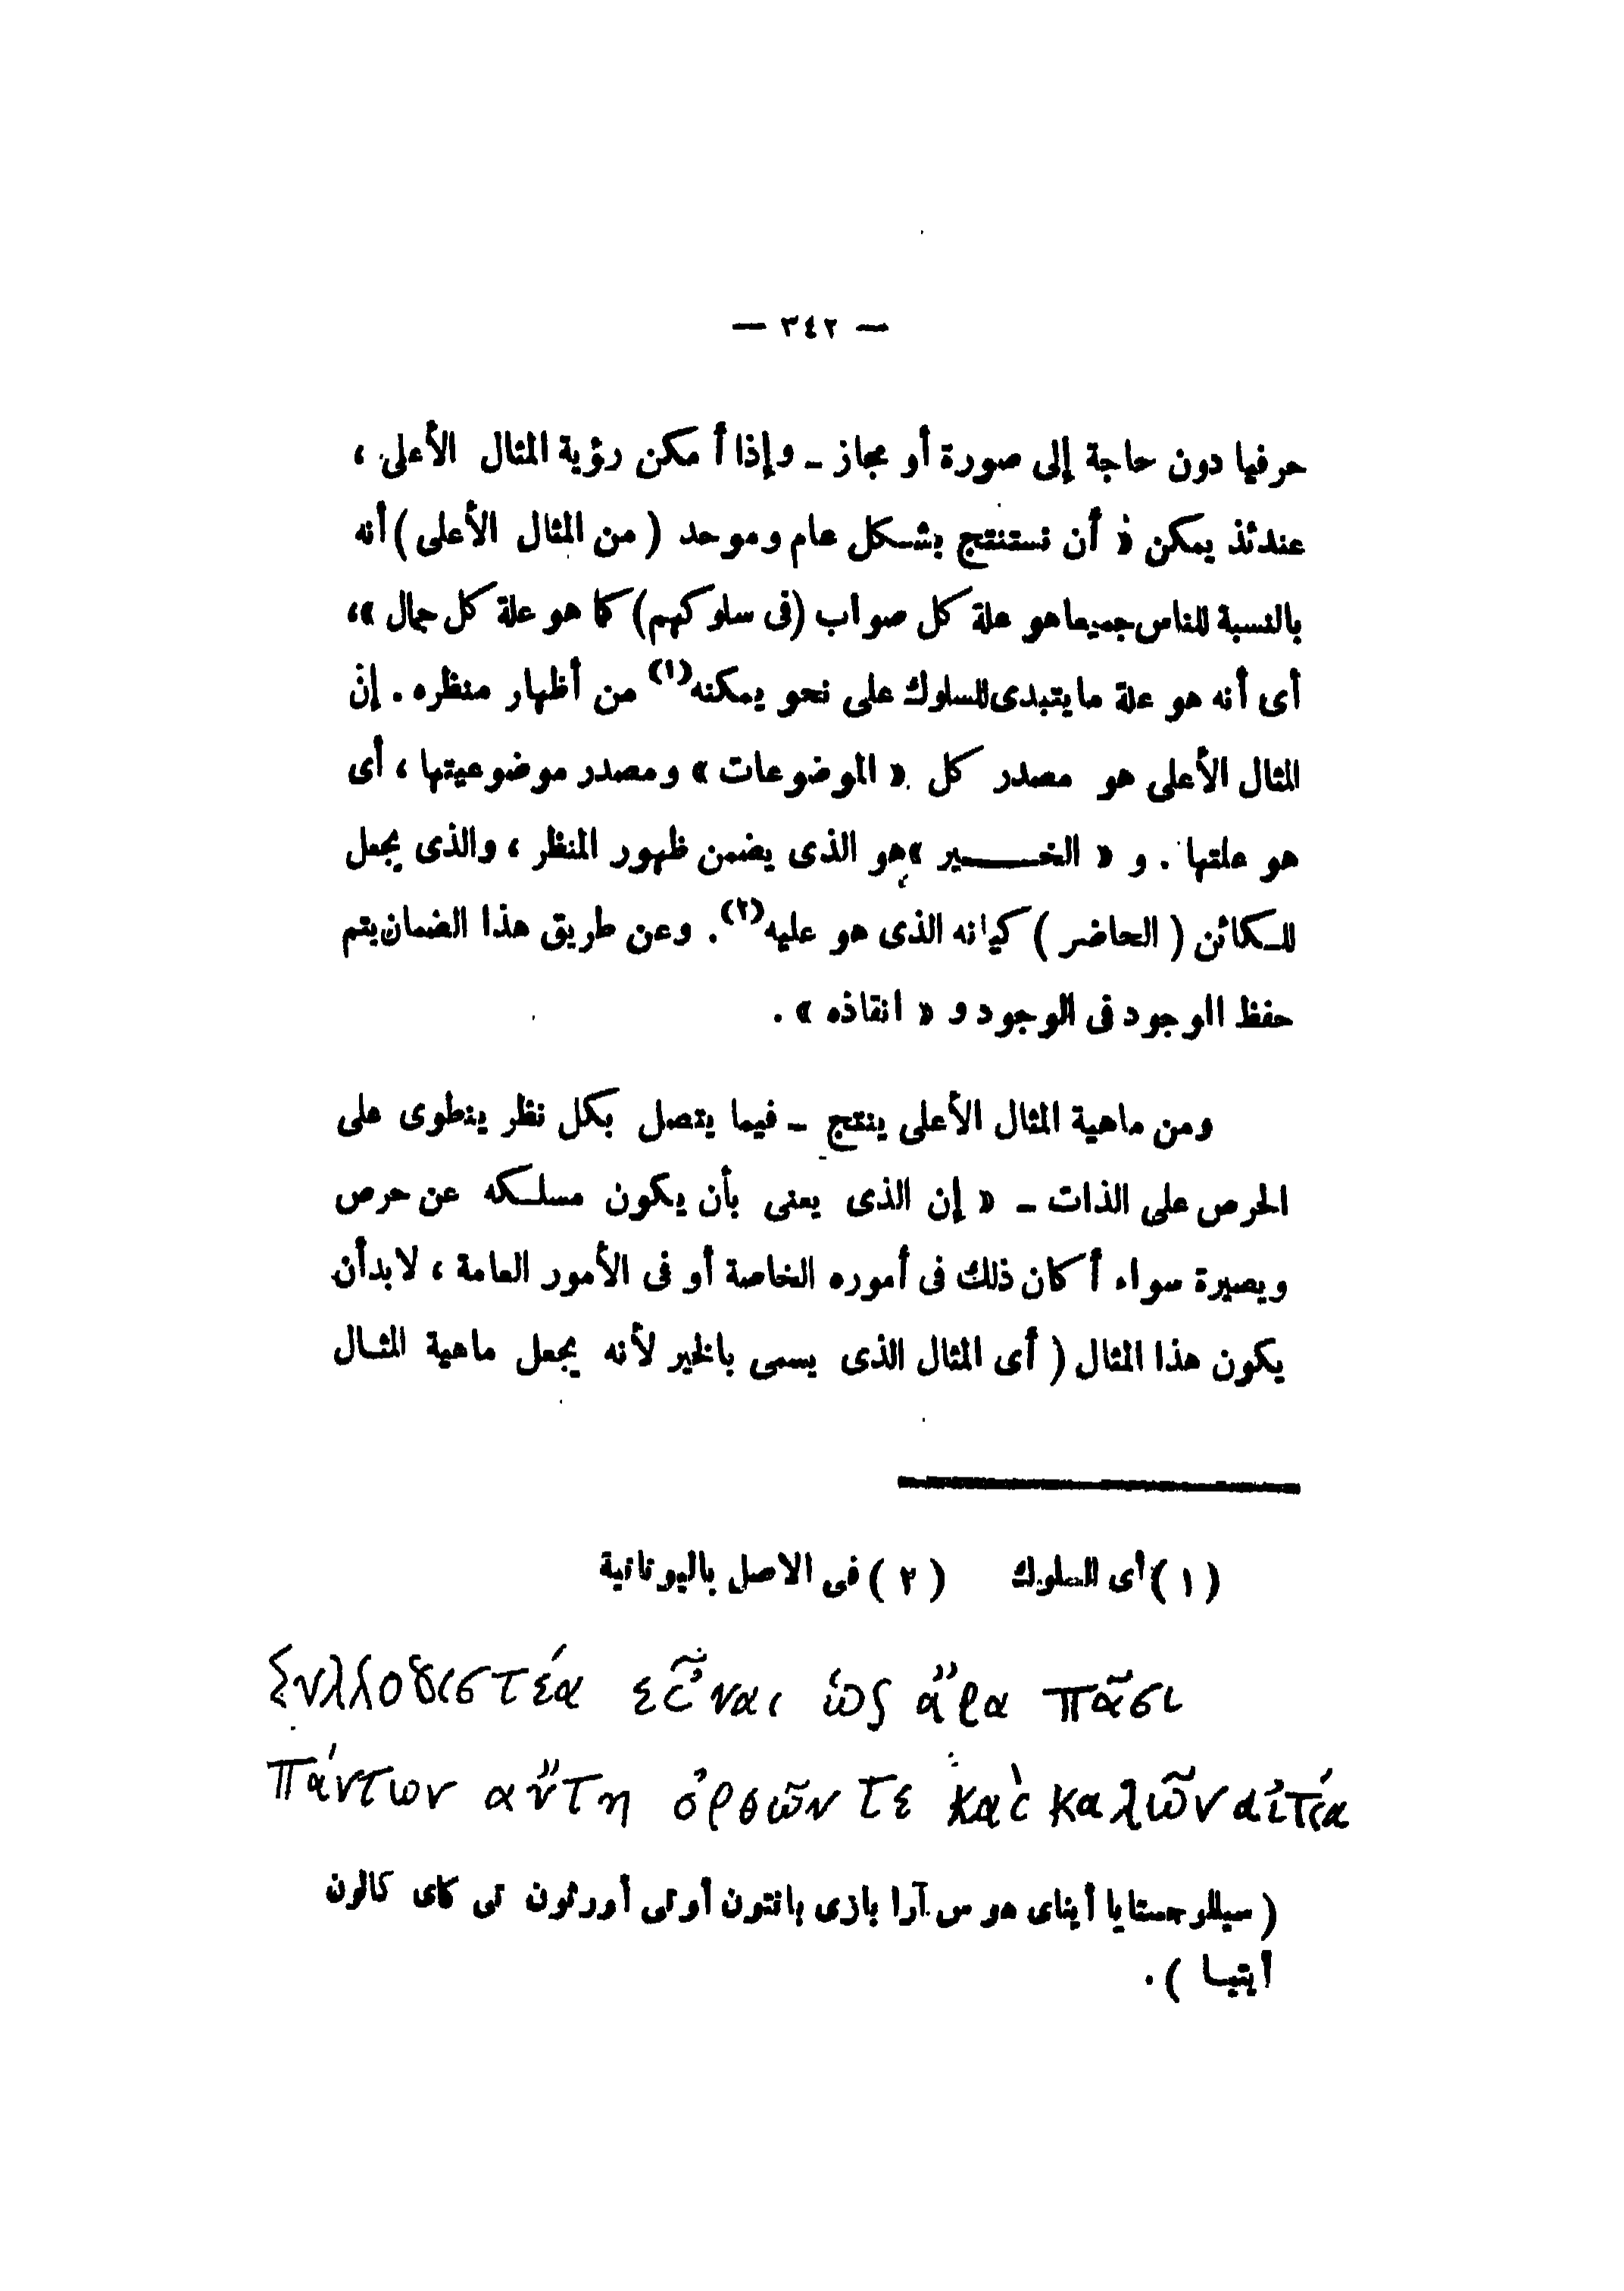 — ٣٤٢ —
حرفيا دون حاجة إلى صورة أو مجاز ـ وإذا أمكن رؤية المثال الأعلى ،
عندئذ يمكن « أن نستنتج بشكل عام وموحد ( من المثال الأعلى ) أنه
بالنسبة للناس جميعا هو علة كل صواب (فى سلوكهم) كما هو علة كل جمال »،
أى أنه هو علة ما يتبدى للسلوك على نحو يمكنه(١) من أظهار منظره . إن
المثال الأعلى هو مصدر كل « الموضوعات » ومصدر موضوعيتها ، أى
هو علتها . و « الخير » هو الذى يضمن ظهور المنظر ، والذى يجعل
للكائن ( الحاضر ) كيانه الذى هو عليه(٢). وعن طريق هذا الضمان يتم
حفظ الوجود فى الوجود و « انقاذه » .
ومن ماهية المثال الأعلى ينتج ـ فيما يتصل بكل نظر ينطوى على
الحرص على الذات ـ « إن الذى يعنى بأن يكون مسلكه عن حرص
وبصيرة سواء أكان ذلك فى أموره الخاصة أو فى الأمور العامة ، لابد أن
يكون هذا المثال ( أى المثال الذى يسمى بالخير لأنه يجعل ماهية المثال
(١) أى للسلوك (٢) فى الاصل باليونانية
Συλλογιστέα εἶναι ὡς ἄρα πᾶσι
πάντων αὕτη ὀρθῶν τε καὶ καλῶν αἰτία
( سيللوجستايا أيناى هوس آرا بازى بانتون أوتى أورثون تى كاى كالون
أيتيا ) .